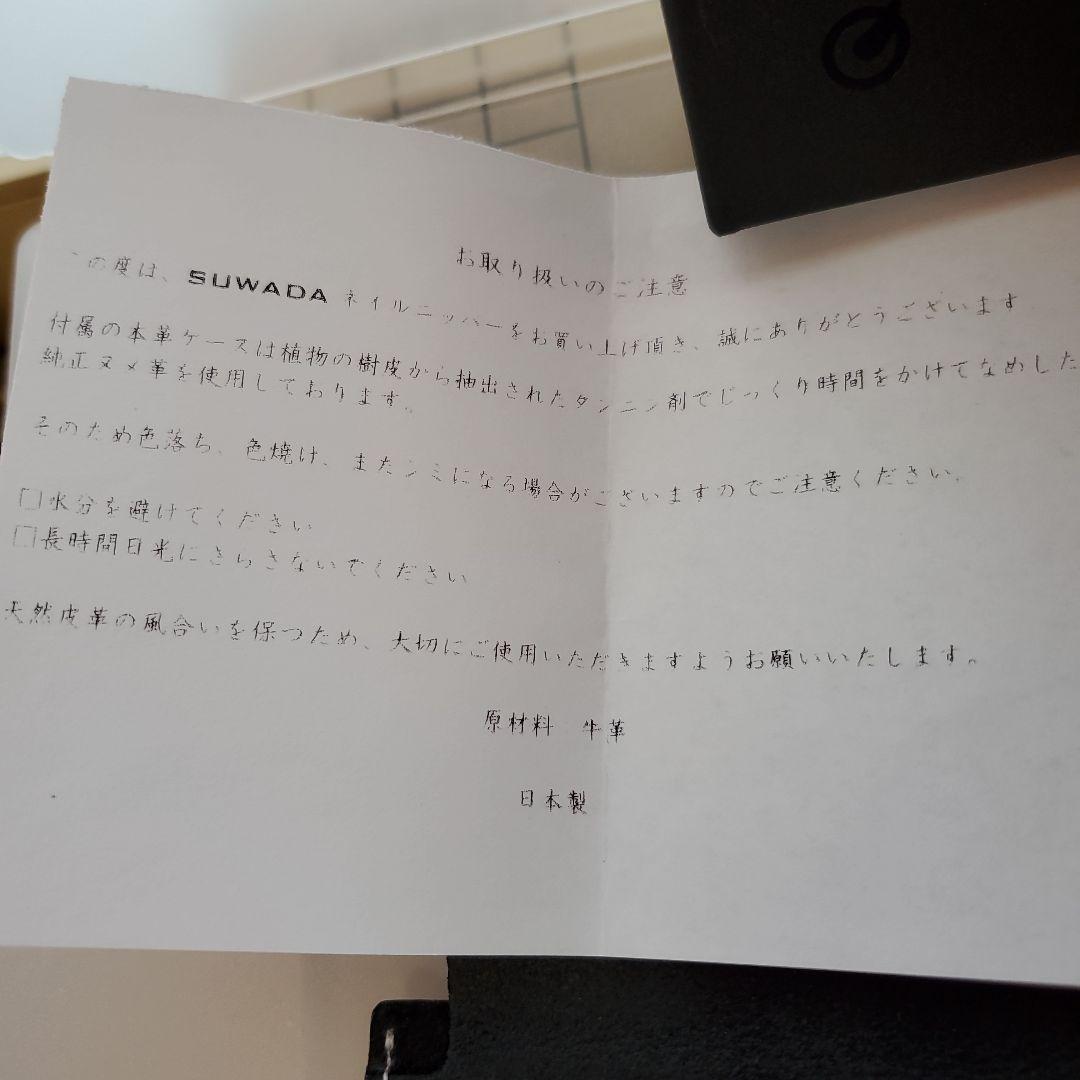 お取り扱いのご注意
この度は、SUWADA ネイルニッパーをお買い上げ頂き、誠にありがとうございます
付属の本革ケースは植物の樹皮から抽出されたタンニン剤でじっくり時間をかけてなめした
純正ヌメ革を使用しております。
そのため色落ち、色焼け、またシミになる場合がございますのでご注意ください。
□水分を避けてください
□長時間日光にさらさないでください
天然皮革の風合いを保つため、大切にご使用いただきますようお願いいたします。
原材料　牛革
日本製